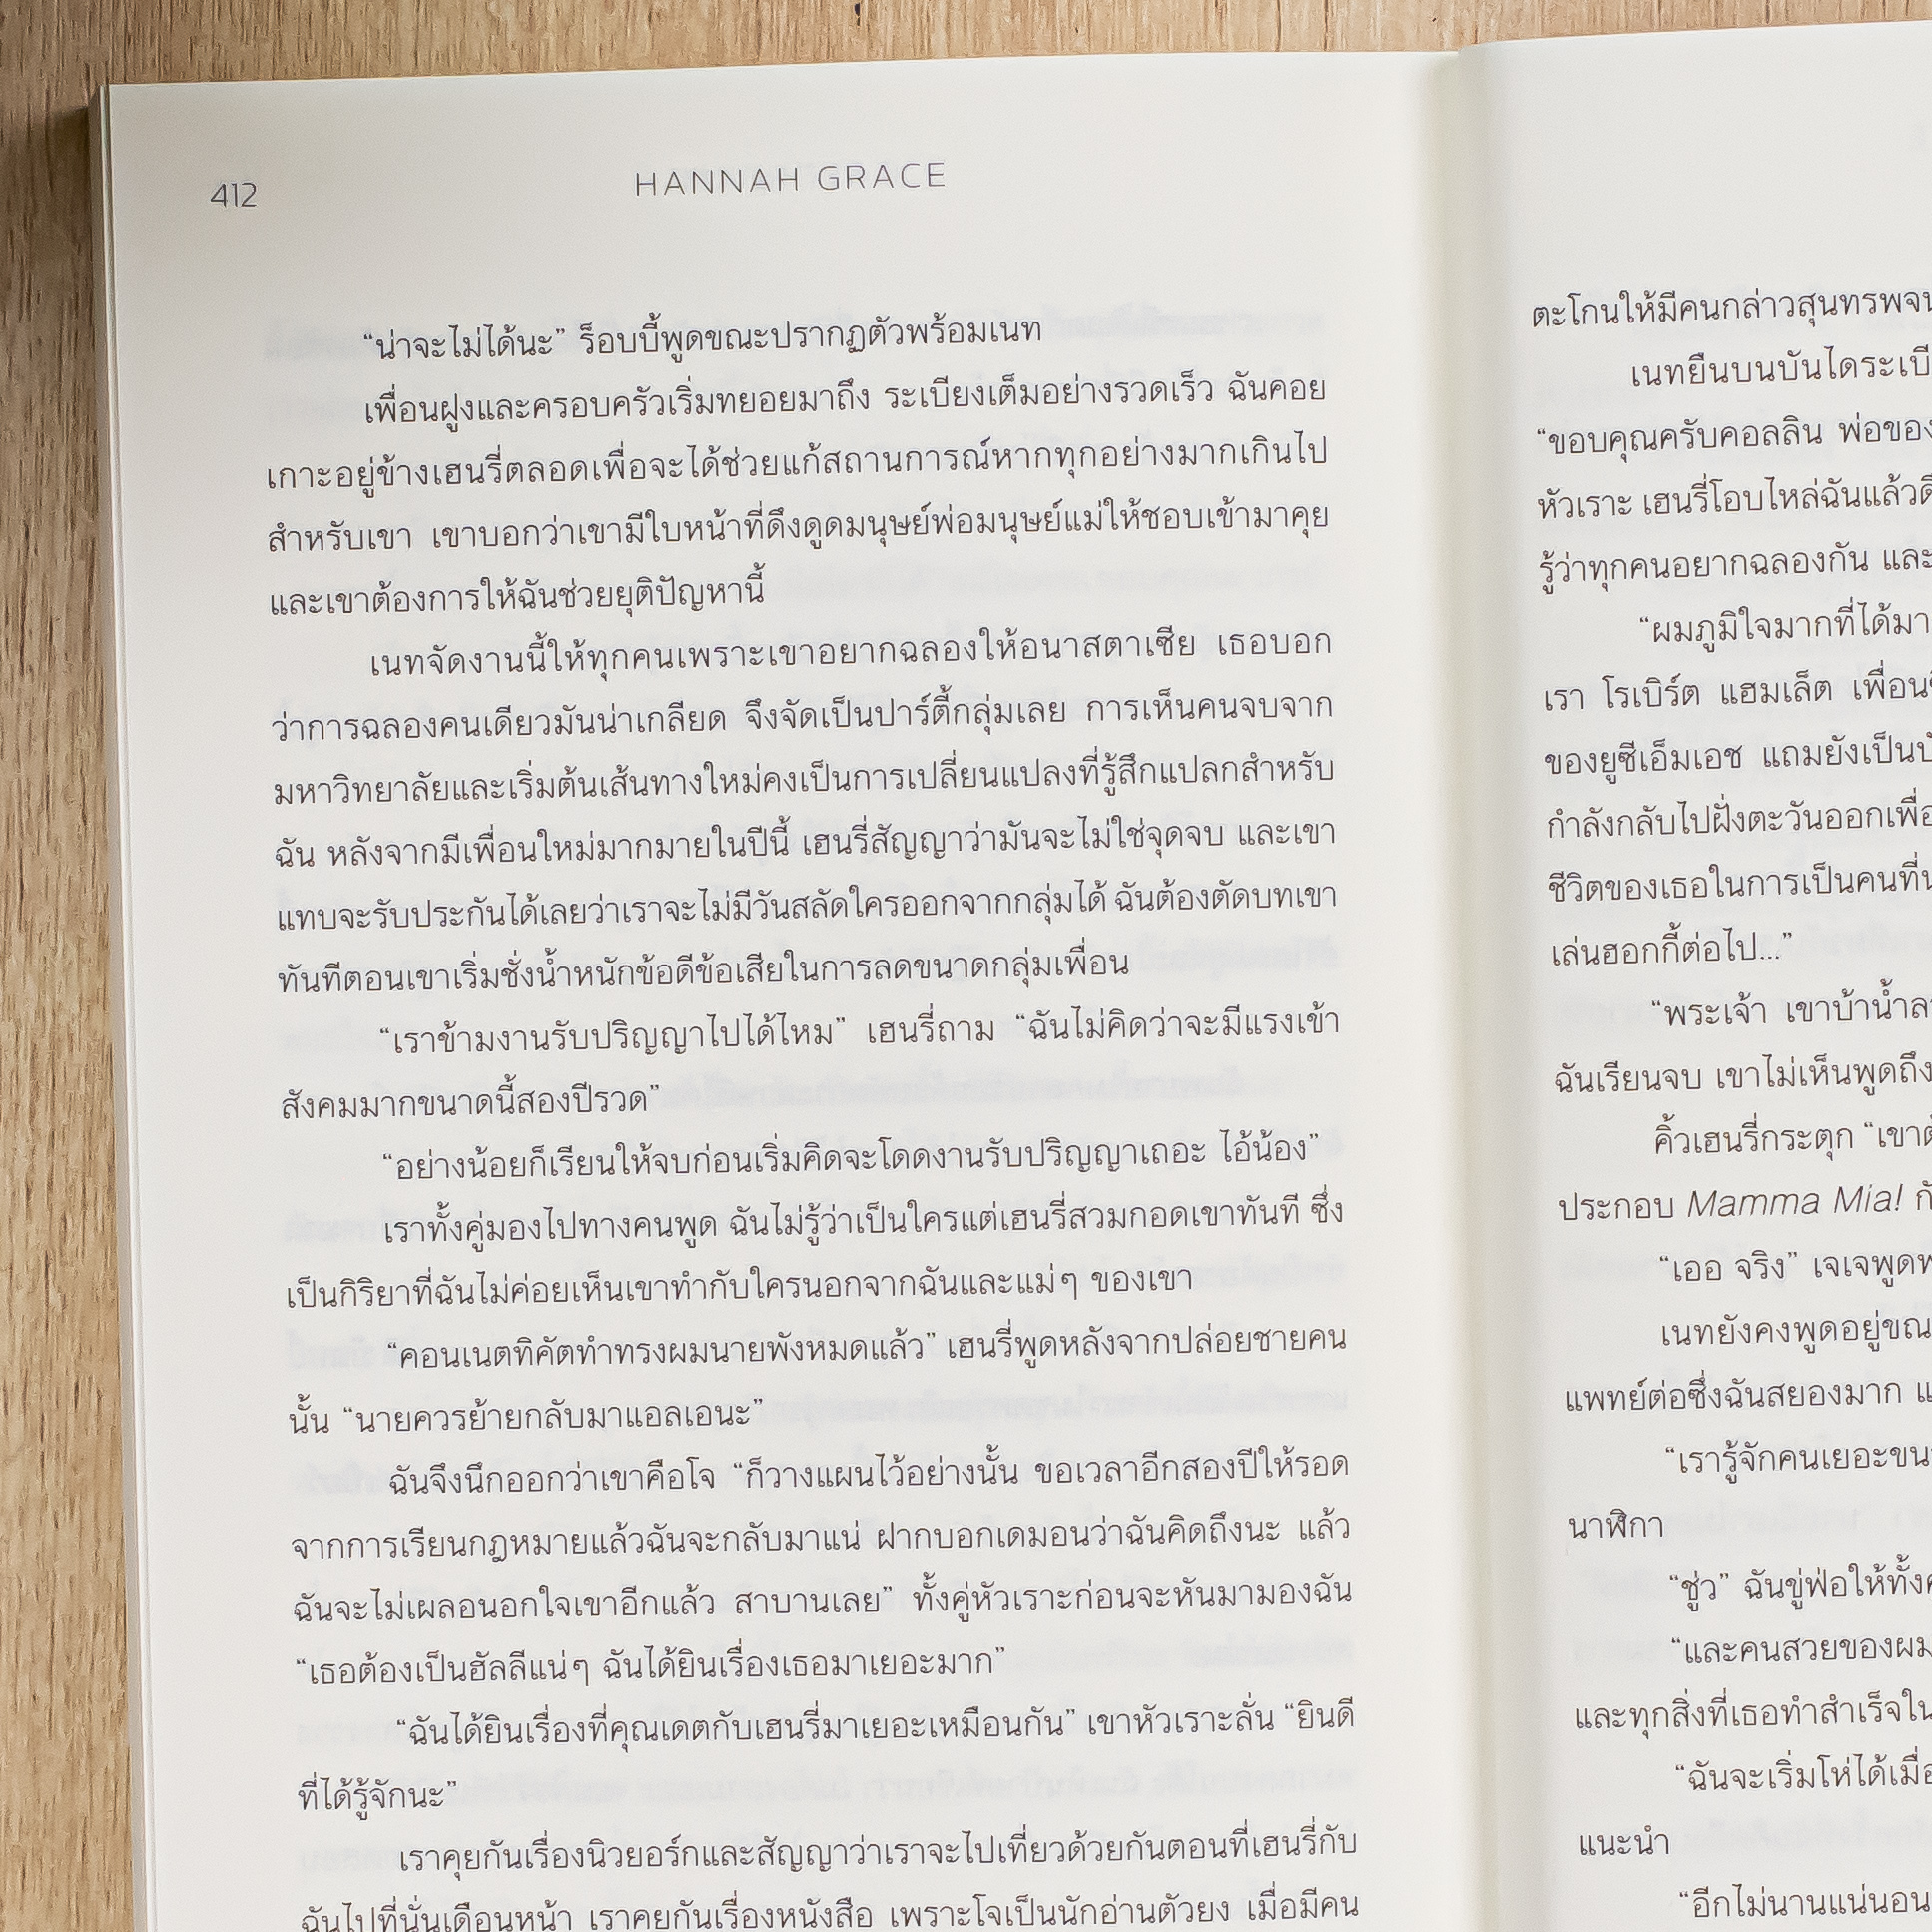 412
HANNAH GRACE
“น่าจะไม่ได้นะ” ร็อบบี้พูดขณะปรากฏตัวพร้อมเนท
เพื่อนฝูงและครอบครัวเริ่มทยอยมาถึง ระเบียงเต็มอย่างรวดเร็ว ฉันคอย
เกาะอยู่ข้างเฮนรี่ตลอดเพื่อจะได้ช่วยแก้สถานการณ์หากทุกอย่างมากเกินไป
สำหรับเขา เขาบอกว่าเขามีใบหน้าที่ดึงดูดมนุษย์พ่อมนุษย์แม่ให้ชอบเข้ามาคุย
และเขาต้องการให้ฉันช่วยยุติปัญหานี้
เนทจัดงานนี้ให้ทุกคนเพราะเขาอยากฉลองให้อนาสตาเซีย เธอบอก
ว่าการฉลองคนเดียวมันน่าเกลียด จึงจัดเป็นปาร์ตี้กลุ่มเลย การเห็นคนจบจาก
มหาวิทยาลัยและเริ่มต้นเส้นทางใหม่คงเป็นการเปลี่ยนแปลงที่รู้สึกแปลกสำหรับ
ฉัน หลังจากมีเพื่อนใหม่มากมายในปีนี้ เฮนรี่สัญญาว่ามันจะไม่ใช่จุดจบ และเขา
แทบจะรับประกันได้เลยว่าเราจะไม่มีวันสลัดใครออกจากกลุ่มได้ ฉันต้องตัดบทเขา
ทันทีตอนเขาเริ่มชั่งน้ำหนักข้อดีข้อเสียในการลดขนาดกลุ่มเพื่อน
“เราข้ามงานรับปริญญาไปได้ไหม” เฮนรี่ถาม “ฉันไม่คิดว่าจะมีแรงเข้า
สังคมมากขนาดนี้สองปีรวด”
“อย่างน้อยก็เรียนให้จบก่อนเริ่มคิดจะโดดงานรับปริญญาเถอะ ไอ้น้อง”
เราทั้งคู่มองไปทางคนพูด ฉันไม่รู้ว่าเป็นใครแต่เฮนรี่สวมกอดเขาทันที ซึ่ง
เป็นกิริยาที่ฉันไม่ค่อยเห็นเขาทำกับใครนอกจากฉันและแม่ๆ ของเขา
“คอนเนตทิคัตทำทรงผมนายพังหมดแล้ว” เฮนรี่พูดหลังจากปล่อยชายคน
นั้น “นายควรย้ายกลับมาแอลเอนะ”
ฉันจึงนึกออกว่าเขาคือโจ “ก็วางแผนไว้อย่างนั้น ขอเวลาอีกสองปีให้รอด
จากการเรียนกฎหมายแล้วฉันจะกลับมาแน่ ฝากบอกเดมอนว่าฉันคิดถึงนะ แล้ว
ฉันจะไม่เผลอนอกใจเขาอีกแล้ว สาบานเลย” ทั้งคู่หัวเราะก่อนจะหันมามองฉัน
“เธอต้องเป็นฮัลลีแน่ๆ ฉันได้ยินเรื่องเธอมาเยอะมาก”
“ฉันได้ยินเรื่องที่คุณเดตกับเฮนรี่มาเยอะเหมือนกัน” เขาหัวเราะลั่น “ยินดี
ที่ได้รู้จักนะ”
เราคุยกันเรื่องนิวยอร์กและสัญญาว่าเราจะไปเที่ยวด้วยกันตอนที่เฮนรี่กับ
ฉันไปที่นั่นเดือนหน้า เราคุยกันเรื่องหนังสือ เพราะโจเป็นนักอ่านตัวยง เมื่อมีคน
ตะโกนให้มีคนกล่าวสุนทรพจน
เนทยืนบนบันไดระเบี
“ขอบคุณครับคอลลิน พ่อของ
หัวเราะ เฮนรี่โอบไหล่ฉันแล้วดึ
รู้ว่าทุกคนอยากฉลองกัน และ
“ผมภูมิใจมากที่ได้มา
เรา โรเบิร์ต แฮมเล็ต เพื่อน
ของยูซีเอ็มเอช แถมยังเป็น
กำลังกลับไปฝั่งตะวันออกเพื่อ
ชีวิตของเธอในการเป็นคนที่
เล่นฮอกกี้ต่อไป...”
“พระเจ้า เขาบ้าน้ำลา
ฉันเรียนจบ เขาไม่เห็นพูดถึง
คิ้วเฮนรี่กระตุก “เขา
ประกอบ Mamma Mia! กั
“เออ จริง” เจเจพูด
เนทยังคงพูดอยู่ขณ
แพทย์ต่อซึ่งฉันสยองมาก แ
“เรารู้จักคนเยอะขน
นาฬิกา
“ชู่ว” ฉันขู่ฟ่อให้ทั้ง
“และคนสวยของผม
และทุกสิ่งที่เธอทำสำเร็จใน
“ฉันจะเริ่มโห่ได้เมื่อ
แนะนำ
“อีกไม่นานแน่นอน